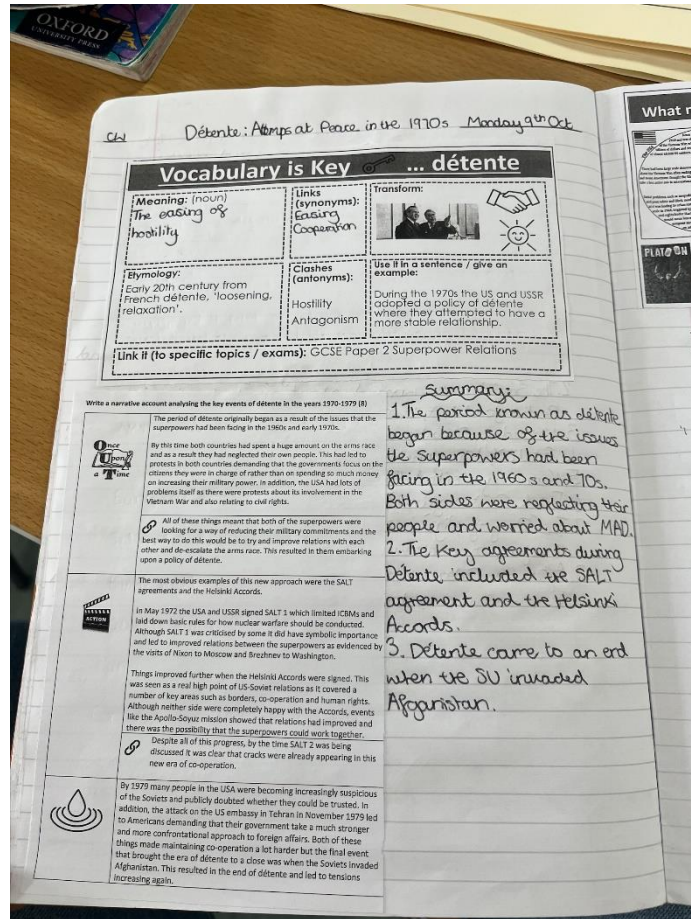 OXFORD
UNIVERSITY PRESS
CW
Détente: Attemps at Peace in the 1970s Monday 9th Oct
Vocabulary is Key ... détente
Meaning: (noun)
The easing of
hostility
Links
(synonyms):
Easing
Cooperation
Transform:
Etymology:
Early 20th century from
French détente, 'loosening,
relaxation'.
Clashes
(antonyms):
Hostility
Antagonism
Use it in a sentence / give an
example:
During the 1970s the US and USSR
adopted a policy of détente
where they attempted to have a
more stable relationship.
Link it (to specific topics / exams): GCSE Paper 2 Superpower Relations
Write a narrative account analysing the key events of détente in the years 1970-1979 (8)
Once
Upon
a Time
The period of détente originally began as a result of the issues that the
superpowers had been facing in the 1960s and early 1970s.
By this time both countries had spent a huge amount on the arms race
and as a result they had neglected their own people. This had led to
protests in both countries demanding that the governments focus on the
citizens they were in charge of rather than on spending so much money
on increasing their military power. In addition, the USA had lots of
problems itself as there were protests about its involvement in the
Vietnam War and also relating to civil rights.
All of these things meant that both of the superpowers were
looking for a way of reducing their military commitments and the
best way to do this would be to try and improve relations with each
other and de-escalate the arms race. This resulted in them embarking
upon a policy of détente.
ACTION
The most obvious examples of this new approach were the SALT
agreements and the Helsinki Accords.
In May 1972 the USA and USSR signed SALT 1 which limited ICBMs and
laid down basic rules for how nuclear warfare should be conducted.
Although SALT 1 was criticised by some it did have symbolic importance
and led to improved relations between the superpowers as evidenced by
the visits of Nixon to Moscow and Brezhnev to Washington.
Things improved further when the Helsinki Accords were signed. This
was seen as a real high point of US-Soviet relations as it covered a
number of key areas such as borders, co-operation and human rights.
Although neither side were completely happy with the Accords, events
like the Apollo-Soyuz mission showed that relations had improved and
there was the possibility that the superpowers could work together.
Despite all of this progress, by the time SALT 2 was being
discussed it was clear that cracks were already appearing in this
new era of co-operation.
By 1979 many people in the USA were becoming increasingly suspicious
of the Soviets and publicly doubted whether they could be trusted. In
addition, the attack on the US embassy in Tehran in November 1979 led
to Americans demanding that their government take a much stronger
and more confrontational approach to foreign affairs. Both of these
things made maintaining co-operation a lot harder but the final event
that brought the era of détente to a close was when the Soviets invaded
Afghanistan. This resulted in the end of détente and led to tensions
increasing again.
Summary:
1. The period known as détente
began because of the issues
the superpowers had been
facing in the 1960s and 70s.
Both sides were neglecting their
people and worried about MAD.
2. The Key agreements during
Détente included the SALT
agreement and the Helsinki
Accords.
3. Détente came to an end
when the SU invaded
Afganistan.
What
PLATOON